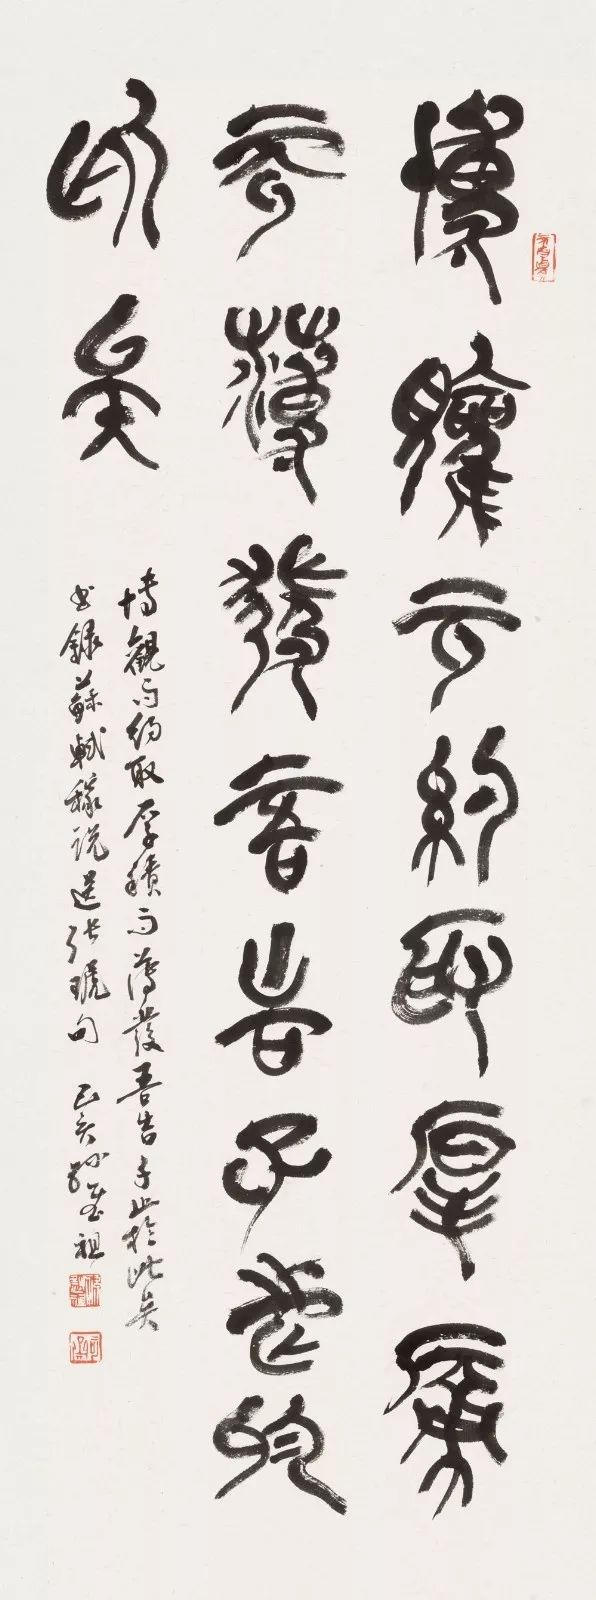 博觀而約取厚積
而薄發吾告子止於
此矣
博觀而約取厚積而薄發吾告子止於此矣
書錄蘇軾稼說送張琥句 己亥孙慰祖